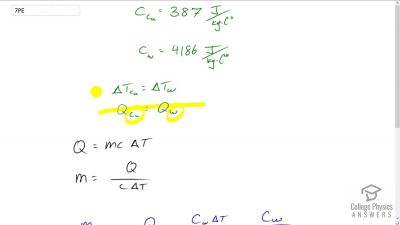 7PE
C_Cu = 387 J/kg·C°
C_w = 4186 J/kg·C°
ΔT_Cu = ΔT_w
Q_Cu = Q_w
Q = mc ΔT
m = Q / cΔT
Q C_w ΔT C_w
College Physics
ANSWERS